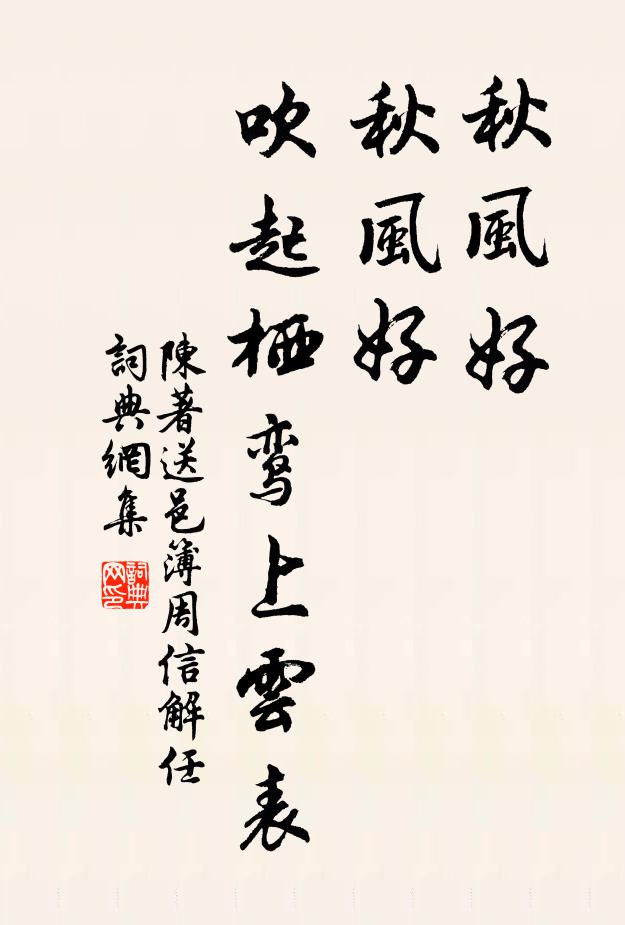 秋風好
秋風好
吹起栖鸾上雲表
陳著送邑簿周信解任
詞典網集
詞典网印